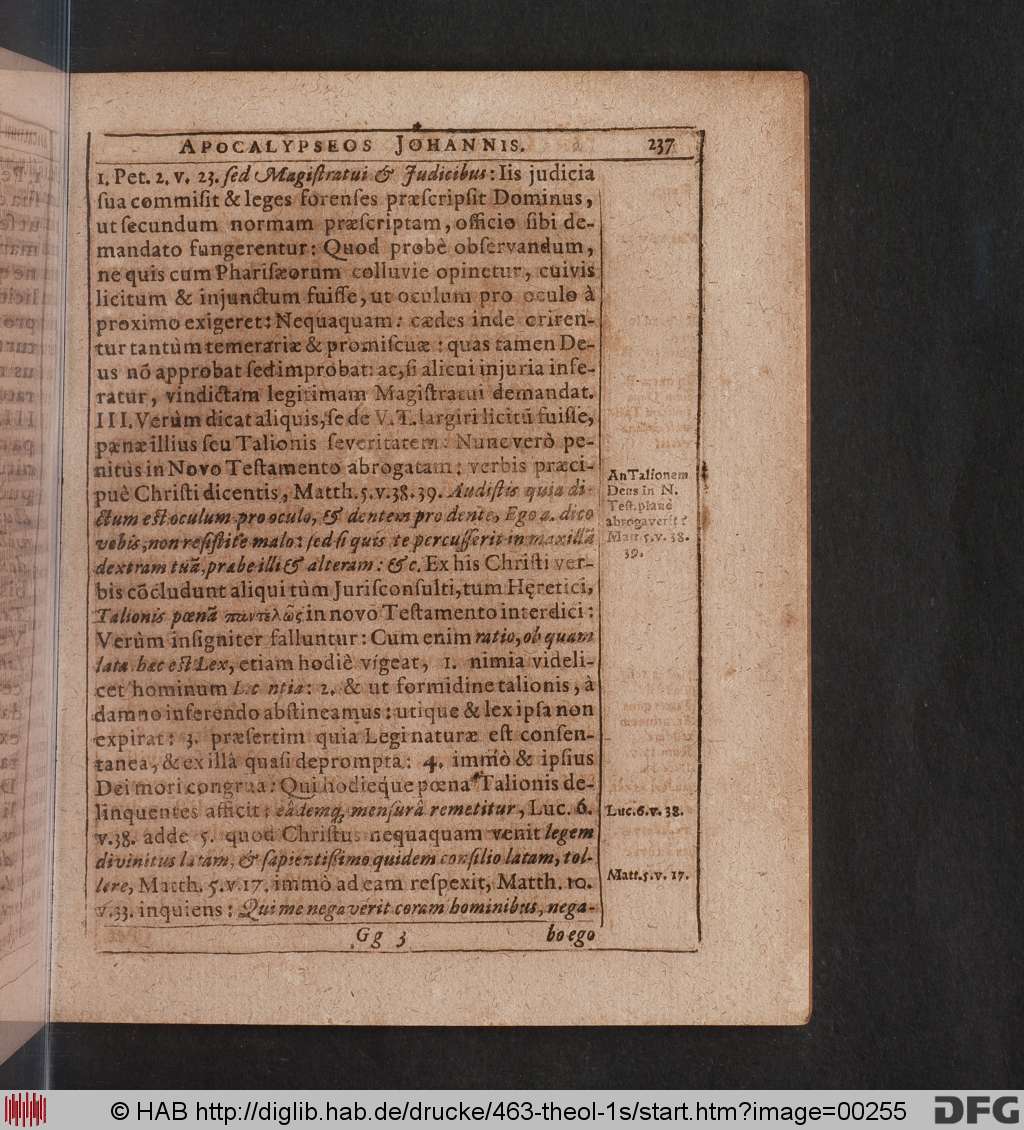 APOCALYPSEOS JOHANNIS. 237
1. Pet. 2. v. 23. ſed Magiſtratui & Judicibus: Iis judicia
ſua commiſit & leges forenſes præſcripſit Dominus,
ut ſecundum normam præſcriptam, officio ſibi de-
mandato fungerentur: Quod probè obſervandum,
ne quis cum Phariſæorum colluvie opinetur, cuivis
licitum & injunctum fuiſſe, ut oculum pro oculo à
proximo exigeret: Nequaquam: cædes inde oriren-
tur tantùm temerariæ & promiſcuæ: quas tamen De-
us nō approbat ſed improbat: ac, ſi alicui injuria infe-
ratur, vindictam legitimam Magiſtratui demandat.
III. Verùm dicat aliquis, ſe de V. T. largiri licitū fuiſſe,
pænæ illius ſeu Talionis ſeveritatem: Nunc verò pe-
nitùs in Novo Teſtamento abrogatam; verbis præci-
puè Chriſti dicentis, Matth. 5. v. 38. 39. Audiſtis quia di-
ctum eſt oculum pro oculo, & dentem pro dente, Ego a. dico
vobis, non reſiſtite malo: ſed ſi quis te percuſſerit in maxillā
dextram tuā, præbe illi & alteram: &c. Ex his Chriſti ver-
bis cōcludunt aliqui tùm Juriſconſulti, tum Hęretici,
Talionis pœnā παντελῶς in novo Teſtamento interdici:
Verùm inſigniter falluntur: Cum enim ratio, ob quam
lata hæc eſt Lex, etiam hodiè vigeat, 1. nimia videli-
cet hominum licentia: 2. & ut formidine talionis, à
damno inferendo abſtineamus: utique & lex ipſa non
expirat: 3. præſertim quia Legi naturæ eſt conſen-
tanea, & ex illà quaſi deprompta: 4. immò & ipſius
Dei mori congrua: Qui hodieque pœna Talionis de-
linquentes afficit: eâdemq́; menſurâ remetitur, Luc. 6.
v. 38. adde 5. quod Chriſtus nequaquam venit legem
divinitus latam, & ſapientiſſimo quidem conſilio latam, tol-
lere, Matth. 5. v. 17. immò ad eam reſpexit, Matth. 10.
v. 33. inquiens: Qui me negaverit coram hominibus, nega-
Gg 3 bo ego
An Talionem
Deus in N.
Teſt. planè
abrogaverit?
Matt. 5. v. 38.
39.
Luc. 6. v. 38.
Matt. 5. v. 17.
© HAB http://diglib.hab.de/drucke/463-theol-1s/start.htm?image=00255 DFG